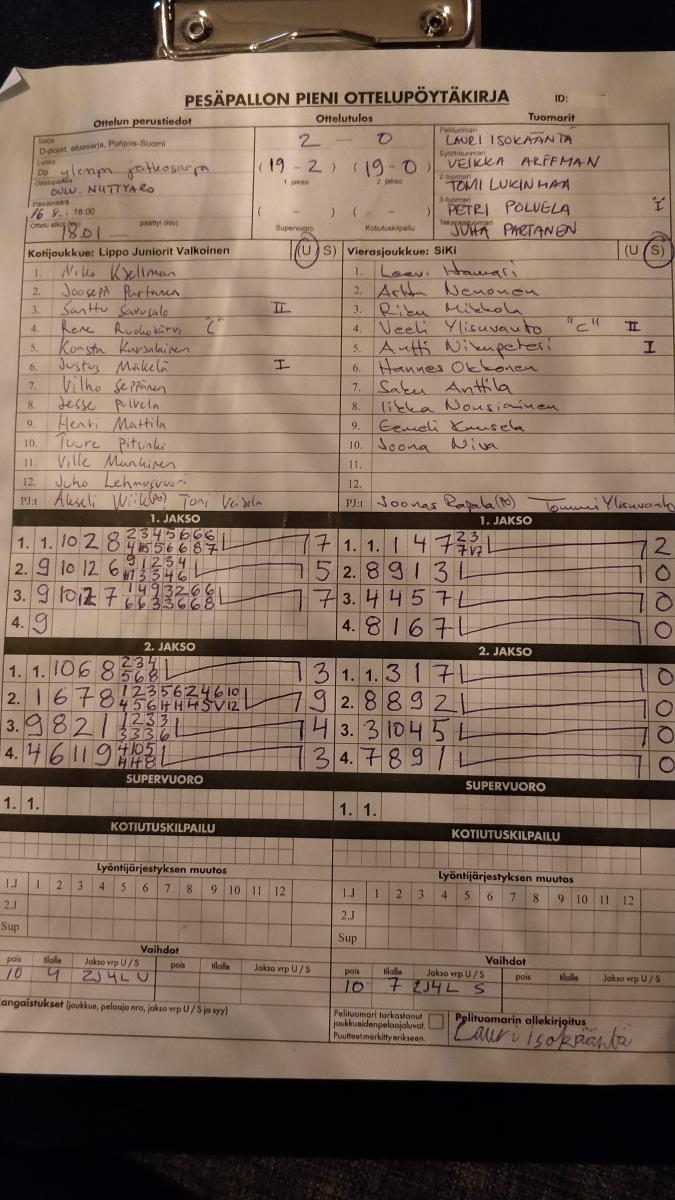 PESÄPALLON PIENI OTTELUPÖYTÄKIRJA ID:
Ottelun perustiedot Ottelutulos Tuomarit
Sarja
D-pojat, aluesarja, Pohjois-Suomi
2 - 0
Pelituomari
LAURI ISOKÄÄNTÄ
Lohko
Dp ylempi jatkosarja
(19-2) (19-0)
1. jakso 2. jakso
Syöttötuomari
VEIKKA ARFFMAN
Ottelupaikka
OULU, NIITTYARO
2-tuomari
TOMI LUKINMAA
Päivämäärä
16.8. 18:00
( - ) ( - )
Supervuoro Kotiutuskilpailu
3-tuomari
PETRI POLVELA "I"
Ottelu alkoi (klo) päättyi (klo)
18.01
Takarajatuomari
JUHA PARTANEN
Kotijoukkue: Lippo Juniorit Valkoinen (U S)
1. Niko Kjellman
2. Jooseppi Partanen
3. Santtu Savusalo II
4. Rene Ruokojärvi "C"
5. Konsta Karjalainen
6. Justus Mäkelä I
7. Vilho Seppänen
8. Jesse Polvela
9. Henri Mattila
10. Tuure Pitsinki
11. Ville Manninen
12. Juho Lehmusvuori
PJ:t Akseli Wiik (PO), Toni Veijola
Vierasjoukkue: SiKi (U S)
1. Leevi Hamari
2. Arttu Nenonen
3. Riku Mikkola
4. Veeli Ylisuvanto "C" II
5. Antti Nikupeteri I
6. Hannes Okkonen
7. Saku Anttila
8. Iikka Nousiainen
9. Eemeli Kuusela
10. Joona Niva
11.
12.
PJ:t Joonas Rapala (PO) Tommi Ylisuvanto
1. JAKSO
1. 1. 10 2 8 7
2. 9 10 12 6 5
3. 9 10 12 7 7
4. 9
1. JAKSO
1. 1. 1 4 7 2
2. 8 9 1 3 0
3. 4 4 5 7 0
4. 8 1 6 7 0
2. JAKSO
1. 1. 10 6 8 3
2. 1 6 7 8 9
3. 9 8 2 1 4
4. 4 6 11 9 3
2. JAKSO
1. 1. 3 1 7 0
2. 8 8 9 2 0
3. 3 10 4 5 0
4. 7 8 9 1 0
SUPERVUORO
1. 1.
SUPERVUORO
1. 1.
KOTIUTUSKILPAILU
KOTIUTUSKILPAILU
Lyöntijärjestyksen muutos
1.J 1 2 3 4 5 6 7 8 9 10 11 12
2.J
Sup
Lyöntijärjestyksen muutos
1.J 1 2 3 4 5 6 7 8 9 10 11 12
2.J
Sup
Vaihdot
pois tilalle Jakso vrp U / S pois tilalle Jakso vrp U / S
10 4 2J4L U
Vaihdot
pois tilalle Jakso vrp U / S pois tilalle Jakso vrp U / S
10 7 2J4L S
Rangaistukset (joukkue, pelaaja nro, jakso vrp U / S ja syy)
Pelituomari tarkastanut
joukkueiden pelaajaluvat.
Puutteet merkitty erikseen.
Pelituomarin allekirjoitus
Lauri Isokääntä